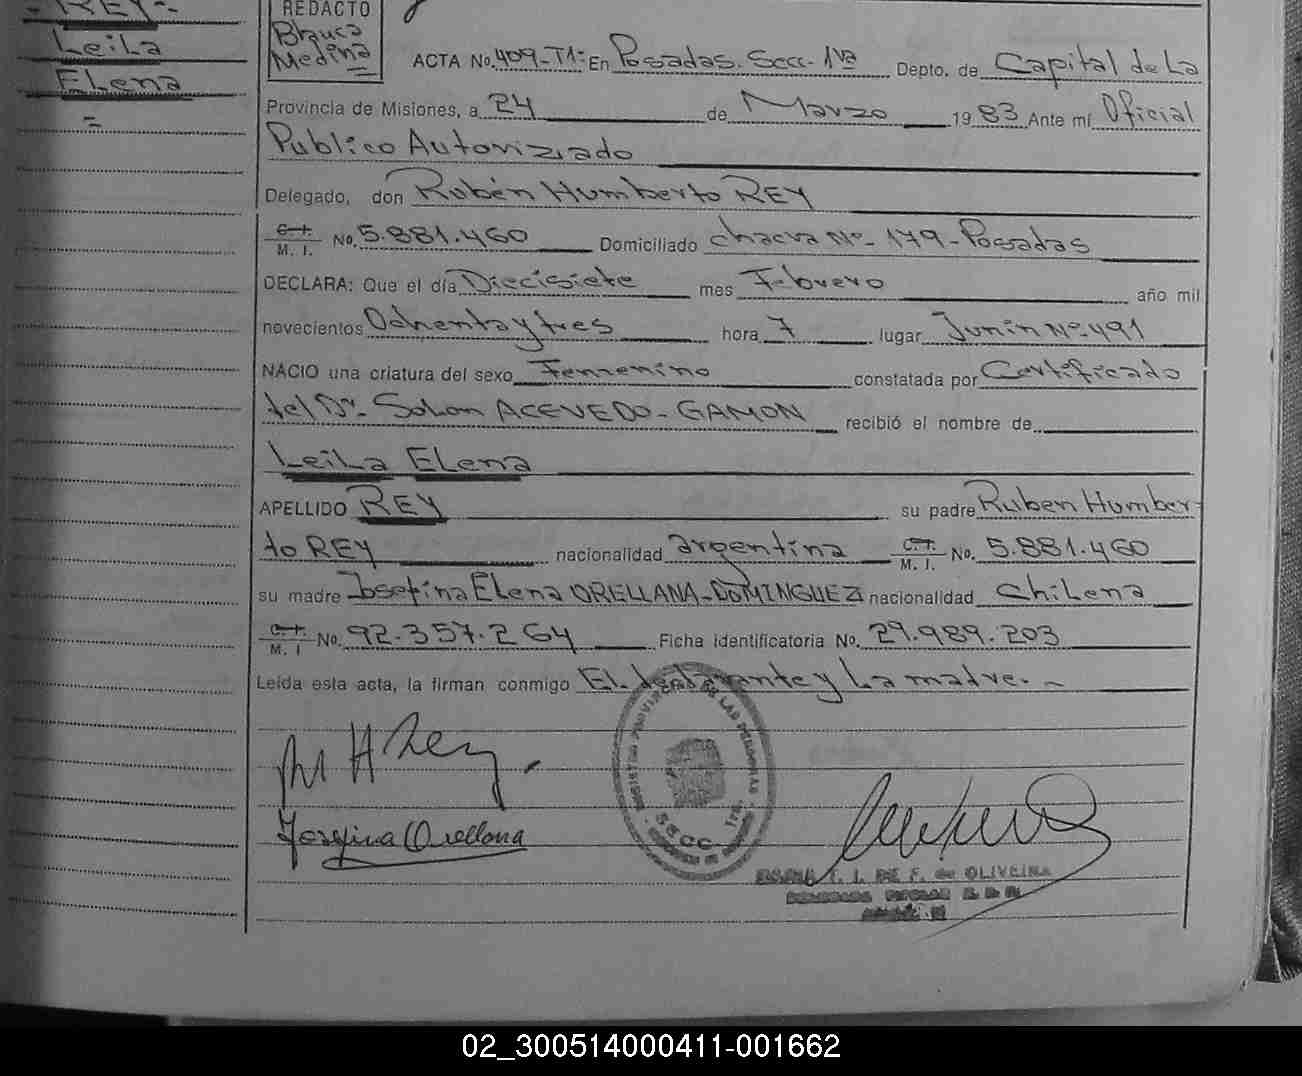 - REY -
Leila
Elena
=
REDACTO
Blanca
Medina
ACTA No. 409-T1: En Posadas. Secc. 1va Depto. de Capital de La
Provincia de Misiones, a 24 de Marzo 1983 Ante mí Oficial
Publico Autorizado
Delegado, don Rubén Humberto REY
C.I. M. I. No. 5.881.460 Domiciliado chacra Nº- 179-Posadas
DECLARA: Que el día Diecisiete mes Febrero año mil
novecientos Ochenta y tres hora 7 lugar Junin Nº-491
NACIO una criatura del sexo Femenino constatada por Certificado
del Dr. Solon ACEVEDO-GAMON recibió el nombre de
Leila Elena
APELLIDO REY su padre Ruben Humber-
to REY nacionalidad argentina C.I. M. I. No. 5.881.460
su madre Josefina Elena ORELLANA-DOMINGUEZ nacionalidad Chilena
C.I. M. I No. 92.357.264 Ficha Identificatoria No. 29.989.203
Leída esta acta, la firman conmigo El declarante y La madre. -
R H Rey.
Josefina Orellana
REGISTRO PROVINCIAL DE LAS PERSONAS
SECC. 1ra.
DE F. de OLIVEIRA
02_300514000411-001662